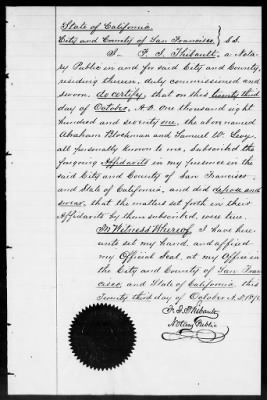 State of California
City and County of San Francisco } S.S.
I F. J. Thibault, a Nota-
ry Public in and for said City and County,
residing therein, duly commissioned and
sworn, do certify, that on this twenty third
day of October, A.D. one thousand eight
hundred and seventy one, the above named
Abraham Blochman and Samuel W. Levy
all personally known to me, subscribed the
foregoing Affidavits in my presence in the
said City and County of San Francisco
and State of California, and did depose and
swear, that the matters set forth in their
Affidavits by them subscribed, were true.
In Witness Whereof, I have here-
unto set my hand, and affixed
my Official Seal, at my Office in
the City and County of San Fran-
cisco, and State of California, this
Twenty third day of October A.D. 1871.
F. J. Thibault
Notary Public